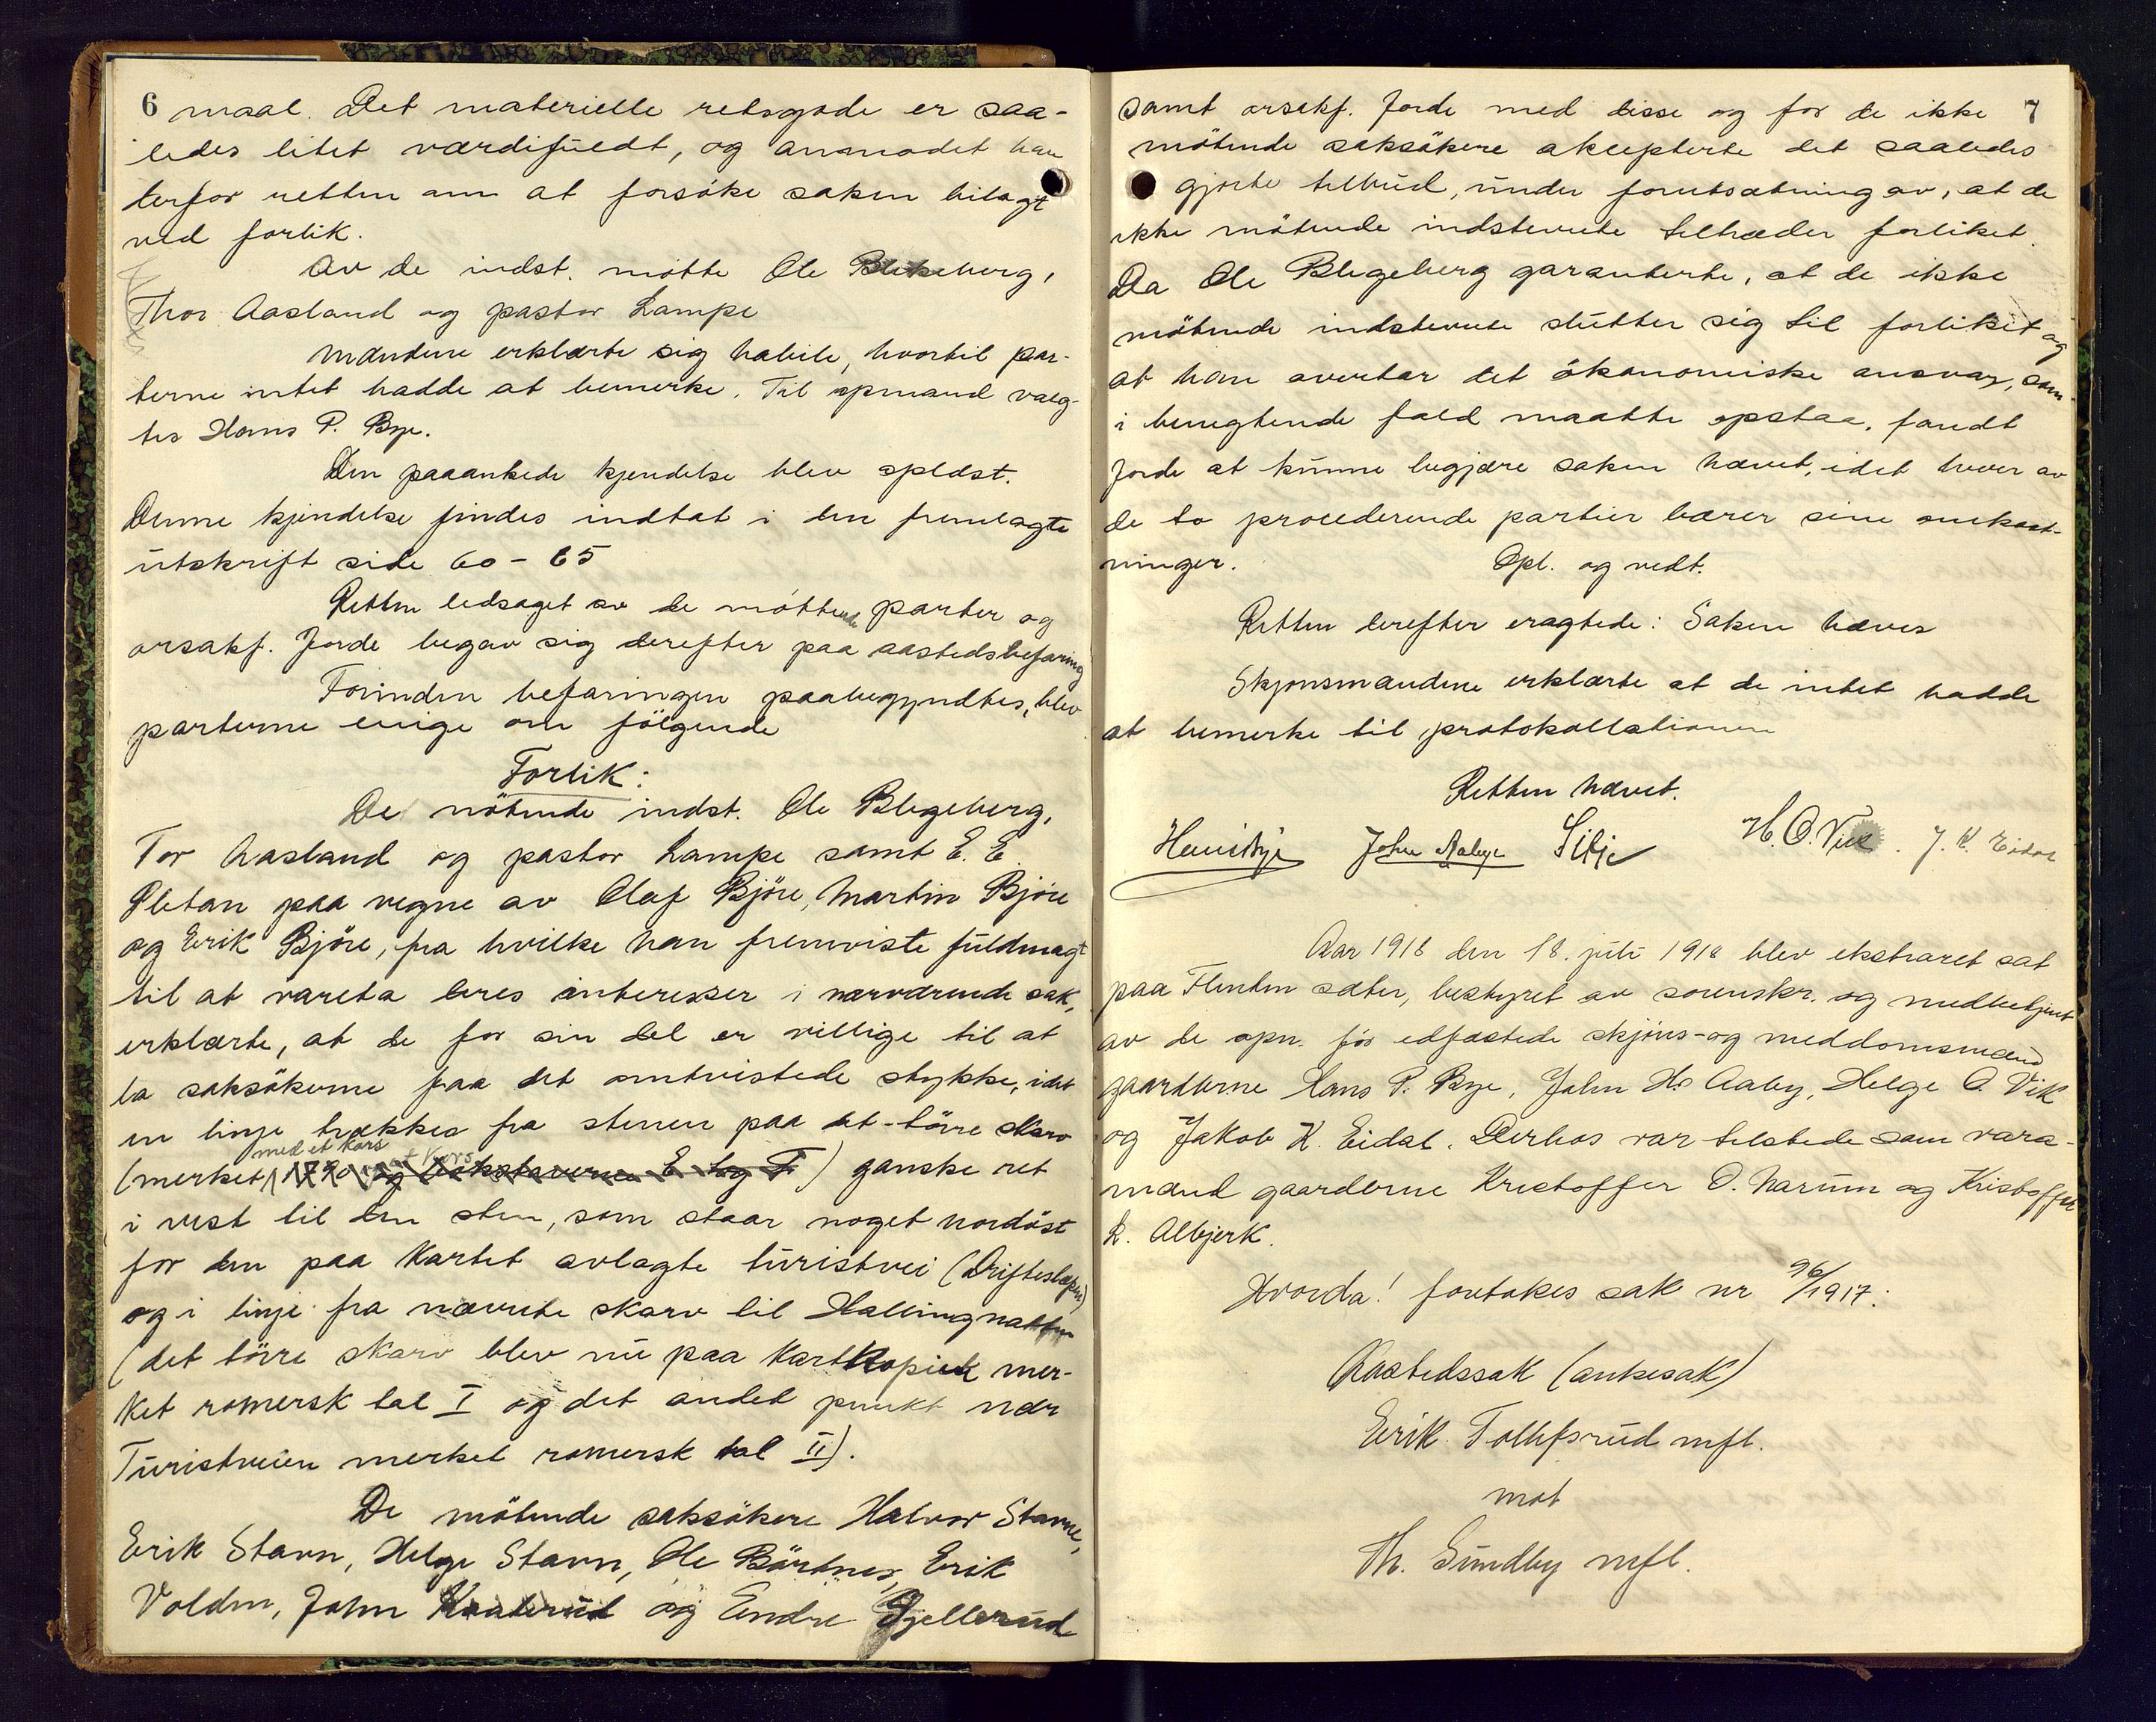 6 maal. Det materielle retsgode er saa-
ledes litet værdifuldt, og anmodet han
derfor retten om at forsöke saken bilagt
ved forlik.
Av de indst. mötte Ole Blikeberg,
Thor Aasland og pastor Lampe
Mændene erklærte sig habile, hvortil par-
terne intet hadde at bemerke. Til opmand valg-
tes Hans P. Bye.
Den paaankede kjendelse blev oplæst.
Denne kjendelse findes indtat i den fremlagte
utskrift side 60 - 65
Retten ledsaget av de möttende parter og
orsakf. Jorde begav sig derefter paa aastedsbefaring
Forinden befaringen paabegyndtes, blev
parterne enige om fölgende
Forlik:
De mötende indst. Ole Blegeberg,
Tor Aasland og pastor Lampe samt E. E.
Pletan paa vegne av Olaf Björe, Martin Björe
og Erik Björe, fra hvilke han fremviste fuldmagt
til at vareta deres interesser i nærværende sak,
erklærte, at de for sin del er villige til at
la saksökerne faa det omtvistede stykke, idet
en linje trækkes fra stenen paa det törre skarv
med et kors
(merket 1790 og bokstaverne E og F) ganske ret
i vest til den sten, som staar noget nordöst
for den paa kartet avlagte turistvei (Driftesløpen)
og i linje fra nævnte skarv til Hallingnatten
(det törre skarv blev nu paa kartkopien mer-
ket romersk tal I og det andet punkt nær
Turistveien merket romersk tal II).
De mötende saksökere Halvor Stavne,
Erik Stavn, Helge Stavn, Ole Börtnes, Erik
Volden, John og Endre Gjellerud
samt orsakf. Jorde med disse og for de ikke 7
mötende saksökere aksepterte det saaledes
gjorte tilbud, under forutsætning av, at de
ikke mötende indstevnte tiltræder forliket.
Da Ole Blegeberg garanterte, at de ikke
mötende indstevnte slutter sig til forliket og
at han overtar det ökonomiske ansvar, som
i benegtende fald maatte opstaa, fandt
Jorde at kunne begjære saken hævet, idet hver av
de to procederende partier bærer sine omkost-
ninger. Opl. og vedt.
Retten derefter eragtede: Saken hæves
Skjönsmændene erklærte at de intet hadde
at bemerke til protokollationen
Retten hævet.
Hans Bye John Aaby Silje H. O. Vik. J. K. Eidal
Aar 1918 den 18. juli 1918 blev ekstraret sat
paa Flenten sæter, bestyret av sorenskr. og medbetjent
av de opn. för edfæstede skjöns- og meddomsmænd
gaardberne Hans P. Bye, John H. Aaby, Helge O. Vik
og Jakob K. Eidal. Derhos var tilstede som vara-
mænd gaarderne Kristoffer O. Narum og Kristoffer
L. Albjerk.
Hvorda! foretokes sak nr 96/1917:
Aastedssak (ankesak)
Erik Tollefsrud mfl.
mot
Th. Sundby mfl.